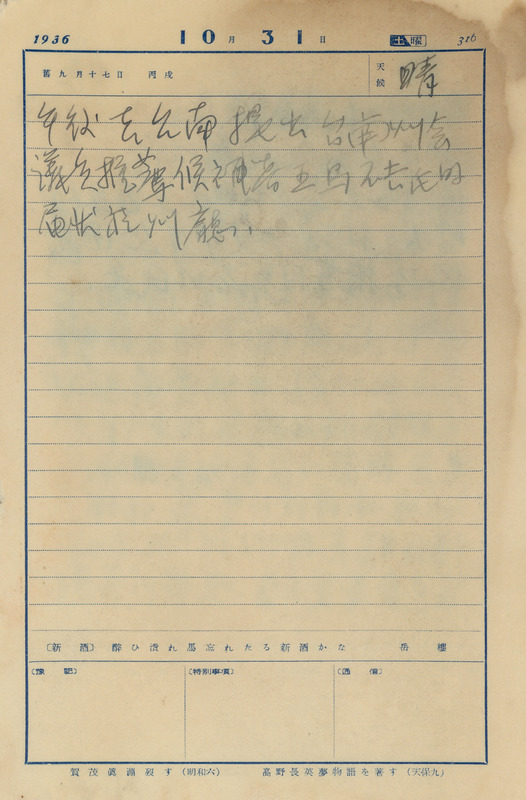 1936 10月31日 土曜 316
舊九月十七日 丙戌 天候 晴
午後去台南提出台南州会
議員推薦候補者王烏不去氏的
届狀於州廳
〔新酒〕 酔ひ潰れ馬忘れたる新酒かな 岳樓
〔豫記〕 〔特別事項〕 〔通信〕
賀茂眞淵歿す(明和六) 高野長英夢物語を著す(天保九)